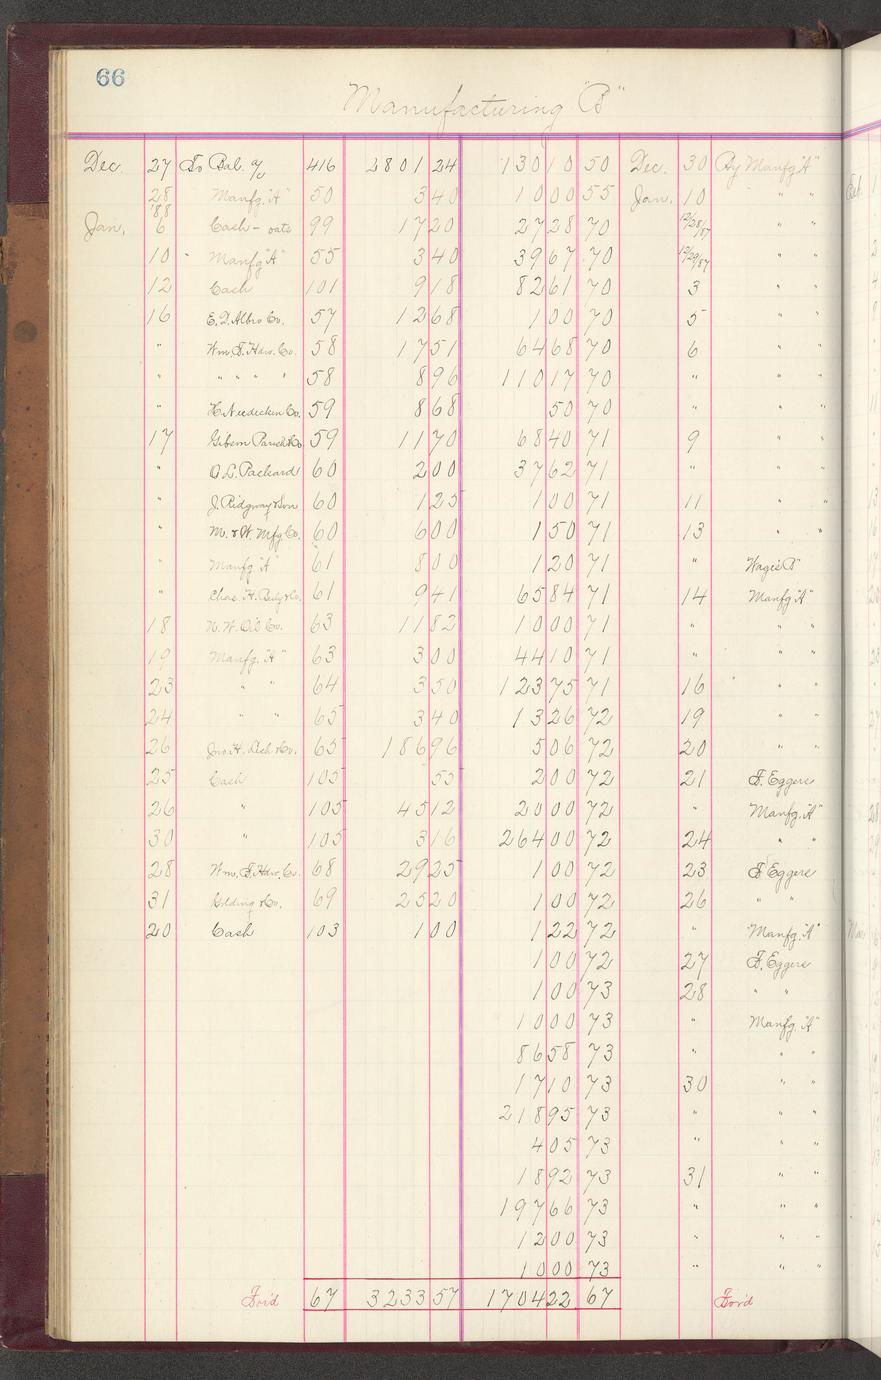 66
Manufacturing "B"
Dec. 27 To Bal. a/c 416 2801 24 130 10 50 Dec. 30 By Manfg "A"
28 Manfg. "A" 50 3 40 10 00 55 Jan. 10 " "
'88
Jan. 6 Cash - oats 99 17 20 27 28 70 12/28/87 " "
10 " Manfg "A" 55 3 40 39 67 70 12/29/87 " "
12 Cash 101 9 18 82 61 70 3 " "
16 E. D. Albro Co. 57 12 68 1 00 70 5 " "
" Wm. F. Hdw. Co. 58 17 51 64 68 70 6 " "
" " " " " 58 8 96 110 17 70 " " "
" Co. 59 8 68 50 70 " " "
17 Gibson 59 11 70 68 40 71 9 " "
" O. L. Packard 60 2 00 37 62 71 " " "
" J. Ridgway & Son 60 1 25 1 00 71 11 " "
" M. & W. Mfg Co. 60 6 00 1 50 71 13 " "
" Manfg "A" 61 8 00 1 20 71 " Wages "B"
" Chas. H. & Co. 61 9 41 65 84 71 14 Manfg "A"
18 N. W. Oil Co. 63 11 82 10 00 71 " " "
19 Manfg. "A" 63 3 00 44 10 71 " " "
23 " " 64 3 50 123 75 71 16 " " "
24 " " 65 3 40 13 26 72 19 " "
26 Jno. H. & Co. 65 186 96 5 06 72 20 " "
25 Cash 105 55 2 00 72 21 F. Eggers
26 " 105 45 12 20 00 72 " Manfg. "A"
30 " 105 3 16 264 00 72 24 " "
28 Wm. F. Hdw. Co. 68 29 25 1 00 72 23 F. Eggers
31 Golding & Co. 69 25 20 1 00 72 26 " "
20 Cash 103 1 00 1 22 72 " Manfg. "A"
1 00 72 27 F. Eggers
1 00 73 28 " "
10 00 73 " Manfg. "A"
86 58 73 " " "
17 10 73 30 " "
218 95 73 " " "
4 05 73 " " "
18 92 73 31 " "
197 66 73 " " "
12 00 73 " " "
10 00 73 " " "
For'd 67 3233 57 1704 22 67 For'd